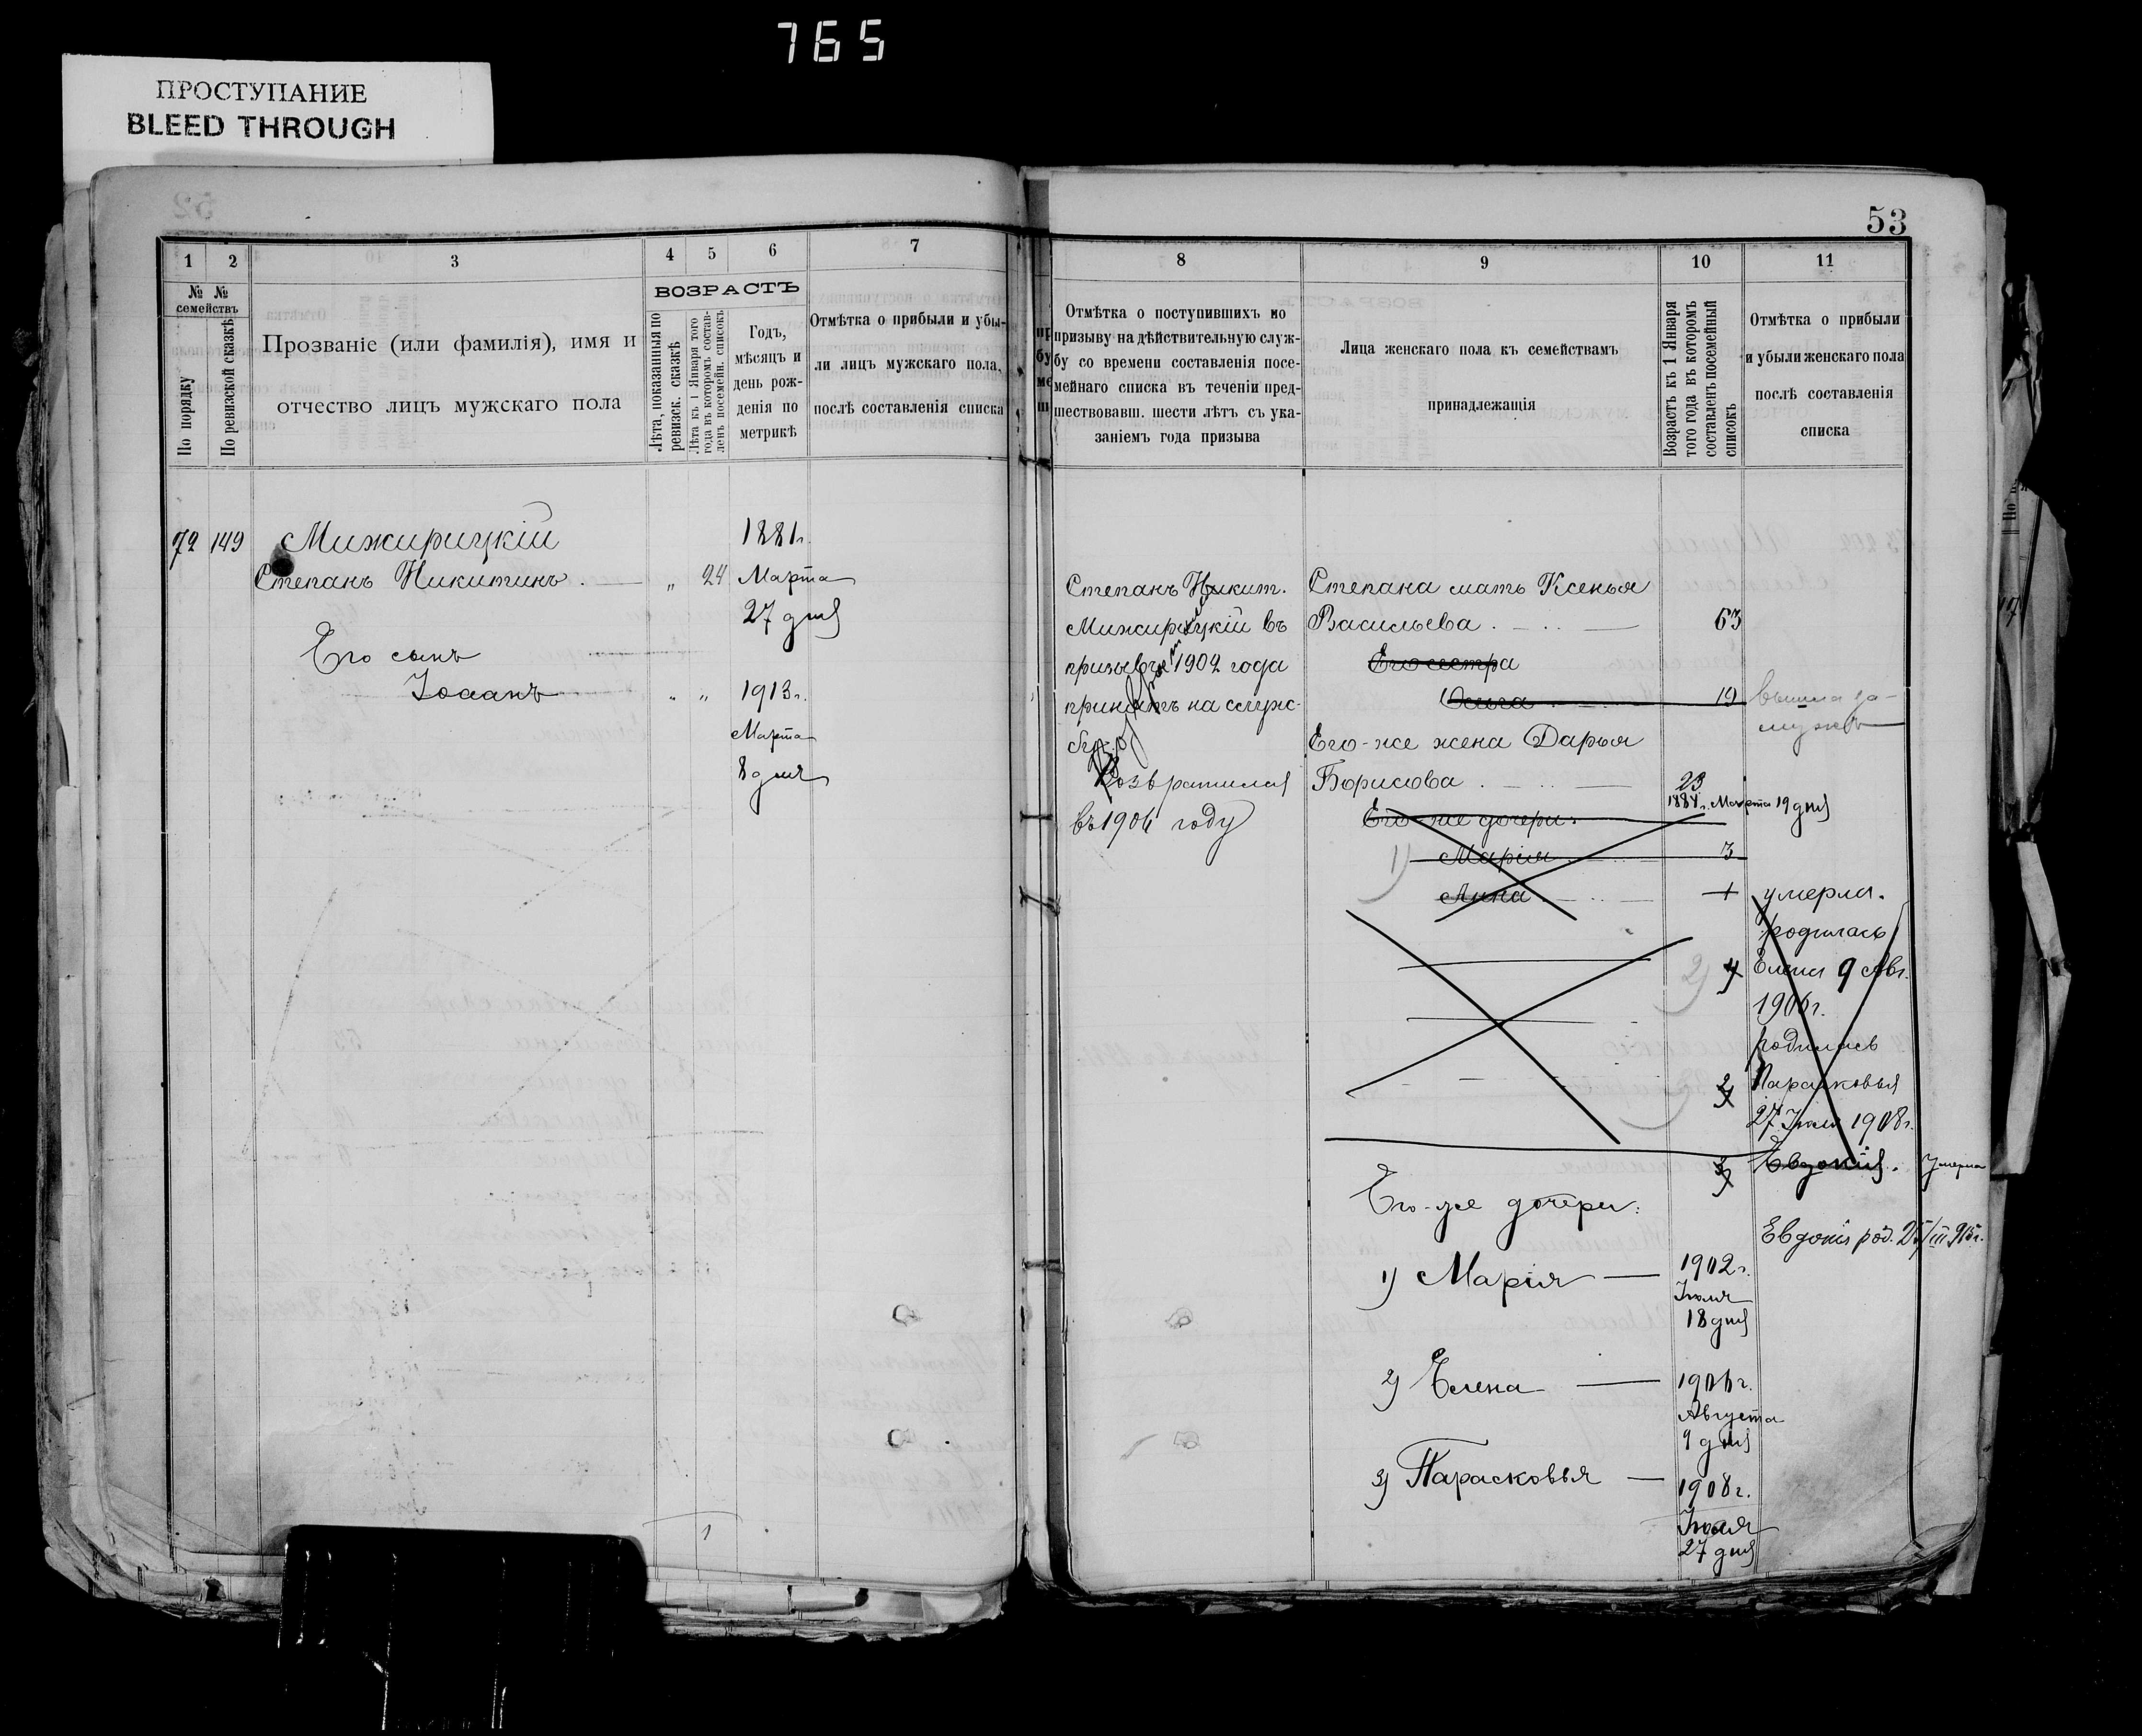 765
ПРОСТУПАНИЕ
BLEED THROUGH
53
1 2 3 4 5 6 7
№ №
семействъ
По порядку
По ревизской сказкѣ
Прозваніе (или фамилія), имя и
отчество лицъ мужскаго пола
ВОЗРАСТЪ
Лѣта, показанныя по
ревизск. сказкѣ
Лѣта къ 1 Января того
года въ которомъ состав-
ленъ посемейн. списокъ
Годъ,
мѣсяцъ и
день рож-
денія по
метрикѣ
Отмѣтка о прибыли и убы-
ли лицъ мужскаго пола,
послѣ составленія списка
72 149 Мижирицкій 1881г.
Степанъ Никитинъ . — „ 24 Марта
27 дня
Его сынъ
Іоаанъ „ „ 1913г.
Марта
8 дня
1
8 9 10 11
Отмѣтка о поступившихъ по
призыву на дѣйствительную служ-
бу со времени составленія посе-
мейнаго списка въ теченіи пред-
шествовавш. шести лѣтъ съ ука-
заніемъ года призыва
Лица женскаго пола къ семействамъ
принадлежащія
Возрастъ къ 1 Января
того года въ которомъ
составленъ посемейный
списокъ
Отмѣтка о прибыли
и убыли женскаго пола
послѣ составленія
списка
Степанъ Никит.
Мижирицкій въ
призывъ 1902 года
принятъ на служ-
бу
Возвратился
въ 1906 году
Степана мать Ксенья
Васильева . — 63
Его сестра
Ольга 19 вышла за-
мужъ
Его-же жена Дарья
Борисова . — 23
1881г. Марта 19 дня
Его-же дочери:
1) Марія 3
Анна 1 умерла.
родилась
2) Елена 9 Авг.
1906г.
родилась
Парасковья
27 Іюля 1908г.
Евдокія. Умерла
Его-же дочери:
Евдокія род. 25/III 915г.
1) Марія — 1902г.
Іюля
18 дня
2) Елена — 1906г.
Августа
9 дня
3) Парасковья — 1908г.
Іюля
27 дня